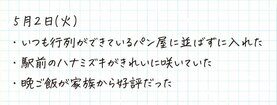 5月2日(火)
・いつも行列ができているパン屋に並ばずに入れた
・駅前のハナミズキがきれいに咲いていた
・晩ご飯が家族から好評だった